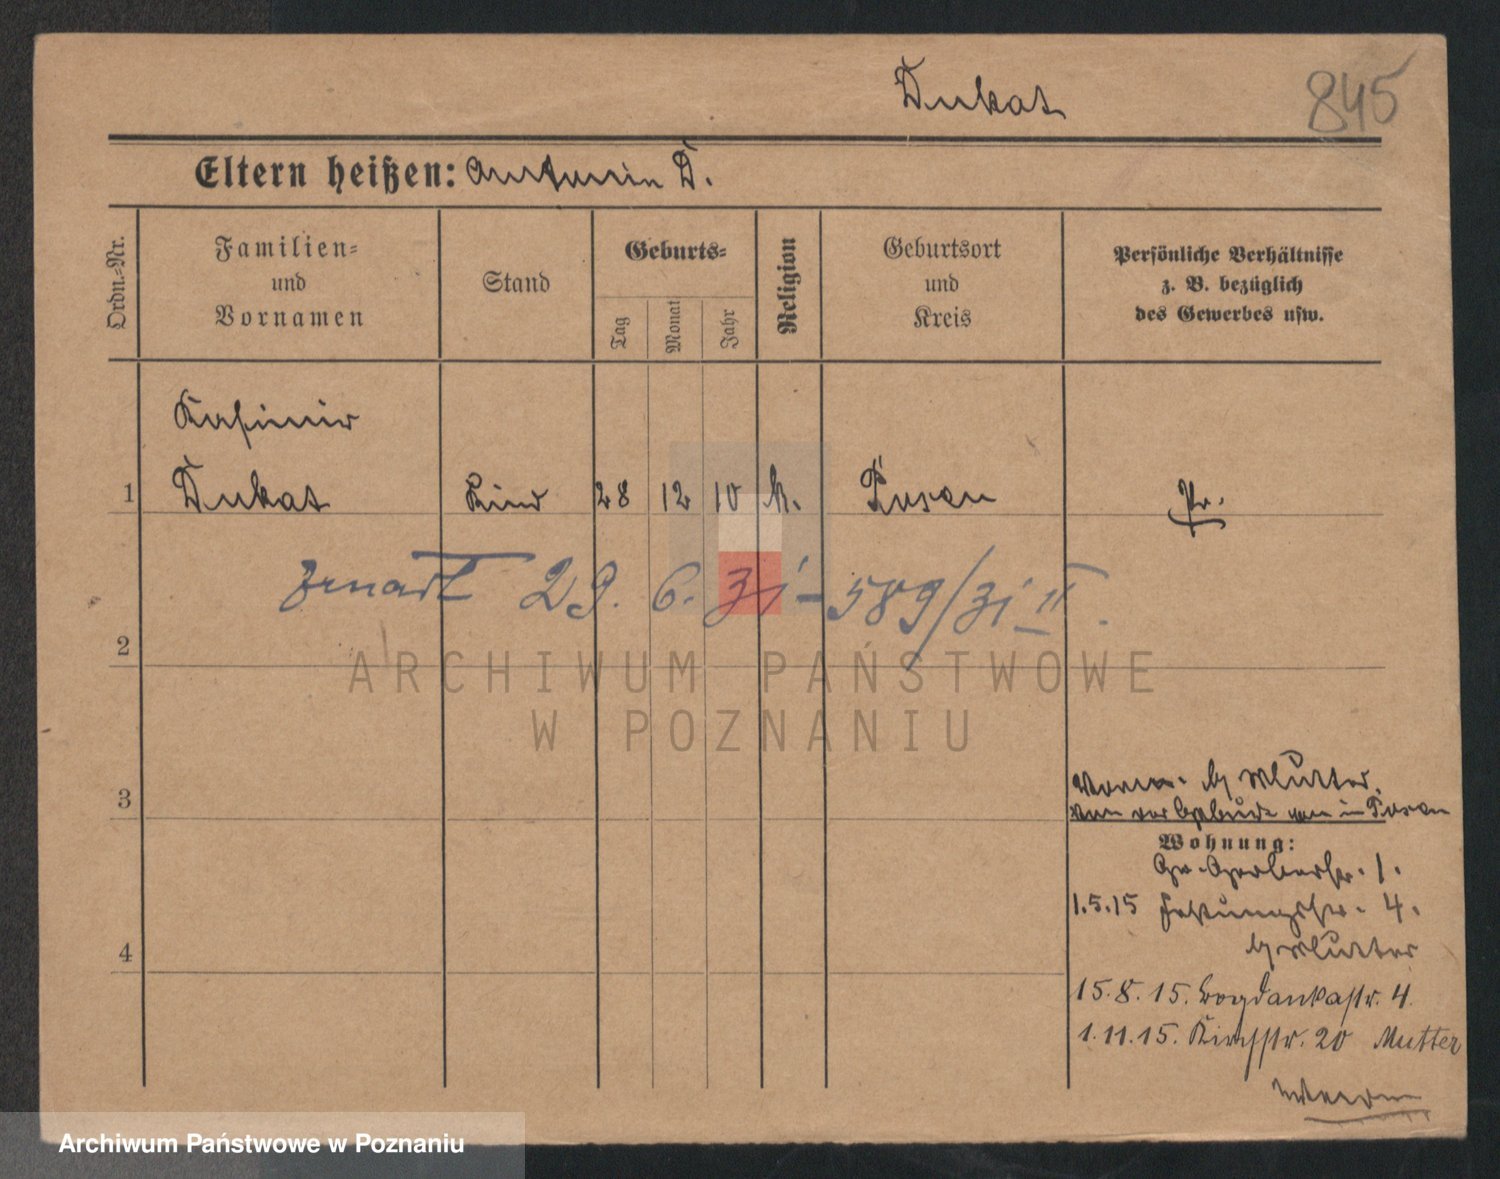 Dukat
845
Eltern heißen: Antonin D.
Ordn.-Nr.
Familien-
und
Vornamen
Stand
Geburts-
Tag
Monat
Jahr
Religion
Geburtsort
und
Kreis
Persönliche Verhältnisse
z. B. bezüglich
des Gewerbes usw.
Kasimir
1 Dukat Kind 28 12 10 k. Posen Pr.
zmarł 29. 6. 31 - 589/31 II.
2
3
b/ Mutter.
von der Geburt in Posen
Wohnung:
Gr. Gerberstr. 1.
1.5.15 Festungsstr. 4.
b/ Mutter
4
15.8.15. Bogdankastr. 4.
1.11.15. Kirchstr. 20 Mutter
ARCHIWUM PAŃSTWOWE
W POZNANIU
Archiwum Państwowe w Poznaniu